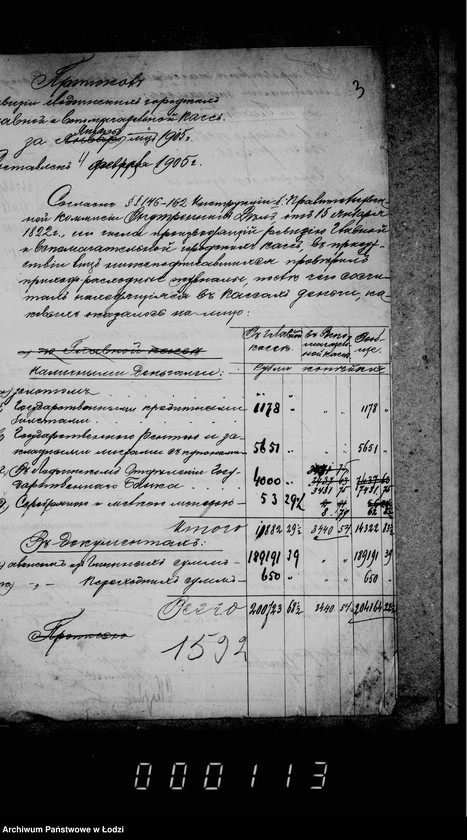 3
Протоколъ
ревизіи Лодзинскихъ городскихъ
Главной и Вспомогательной кассъ
за Январь м-цъ 1905 г.
Составленъ 4 февраля 1905 г.
Согласно §§ 146-162 Инструкціи б. Правительствен-
ной Коммисіи Внутреннихъ Дѣлъ отъ 13 Января
1822 г., произведя ревизію Главной
и Вспомогательной городскихъ кассъ, въ присут-
ствіи нижеподписавшихся провѣрилъ
приходо-расходные журналы, послѣ чего сосчи-
талъ находящіяся въ кассахъ деньги, ка-
ковыхъ оказалось на-лицо:
Въ Главной кассѣ. Въ Вспо-могатель-ной кассѣ. Вооб-ще.
а) въ Главной кассѣ
Наличными Деньгами: Рубли копѣйки
золотомъ " " " " " "
Государственными кредитными
билетами 1178 " " " 1178 "
Государственною рентою и за-
кладными листами съ купонами 5651 " " " 5651 "
Въ Лодзинскомъ Отдѣленіи Госу-
дарственнаго Банка 4000 " 3431 75 7431 75
Серебряною и мѣдною монетою 53 29½ 8 79 62 8½
Итого 10882 29½ 3440 54 14322 83½
Въ Документахъ:
авансомъ 189191 39 " " 189191 39
-„- Переходныхъ суммъ 650 " " " 650 "
Всего 200723 68½ 3440 54 204164 22½
Протоколъ
1592
000113
Archiwum Państwowe w Łodzi